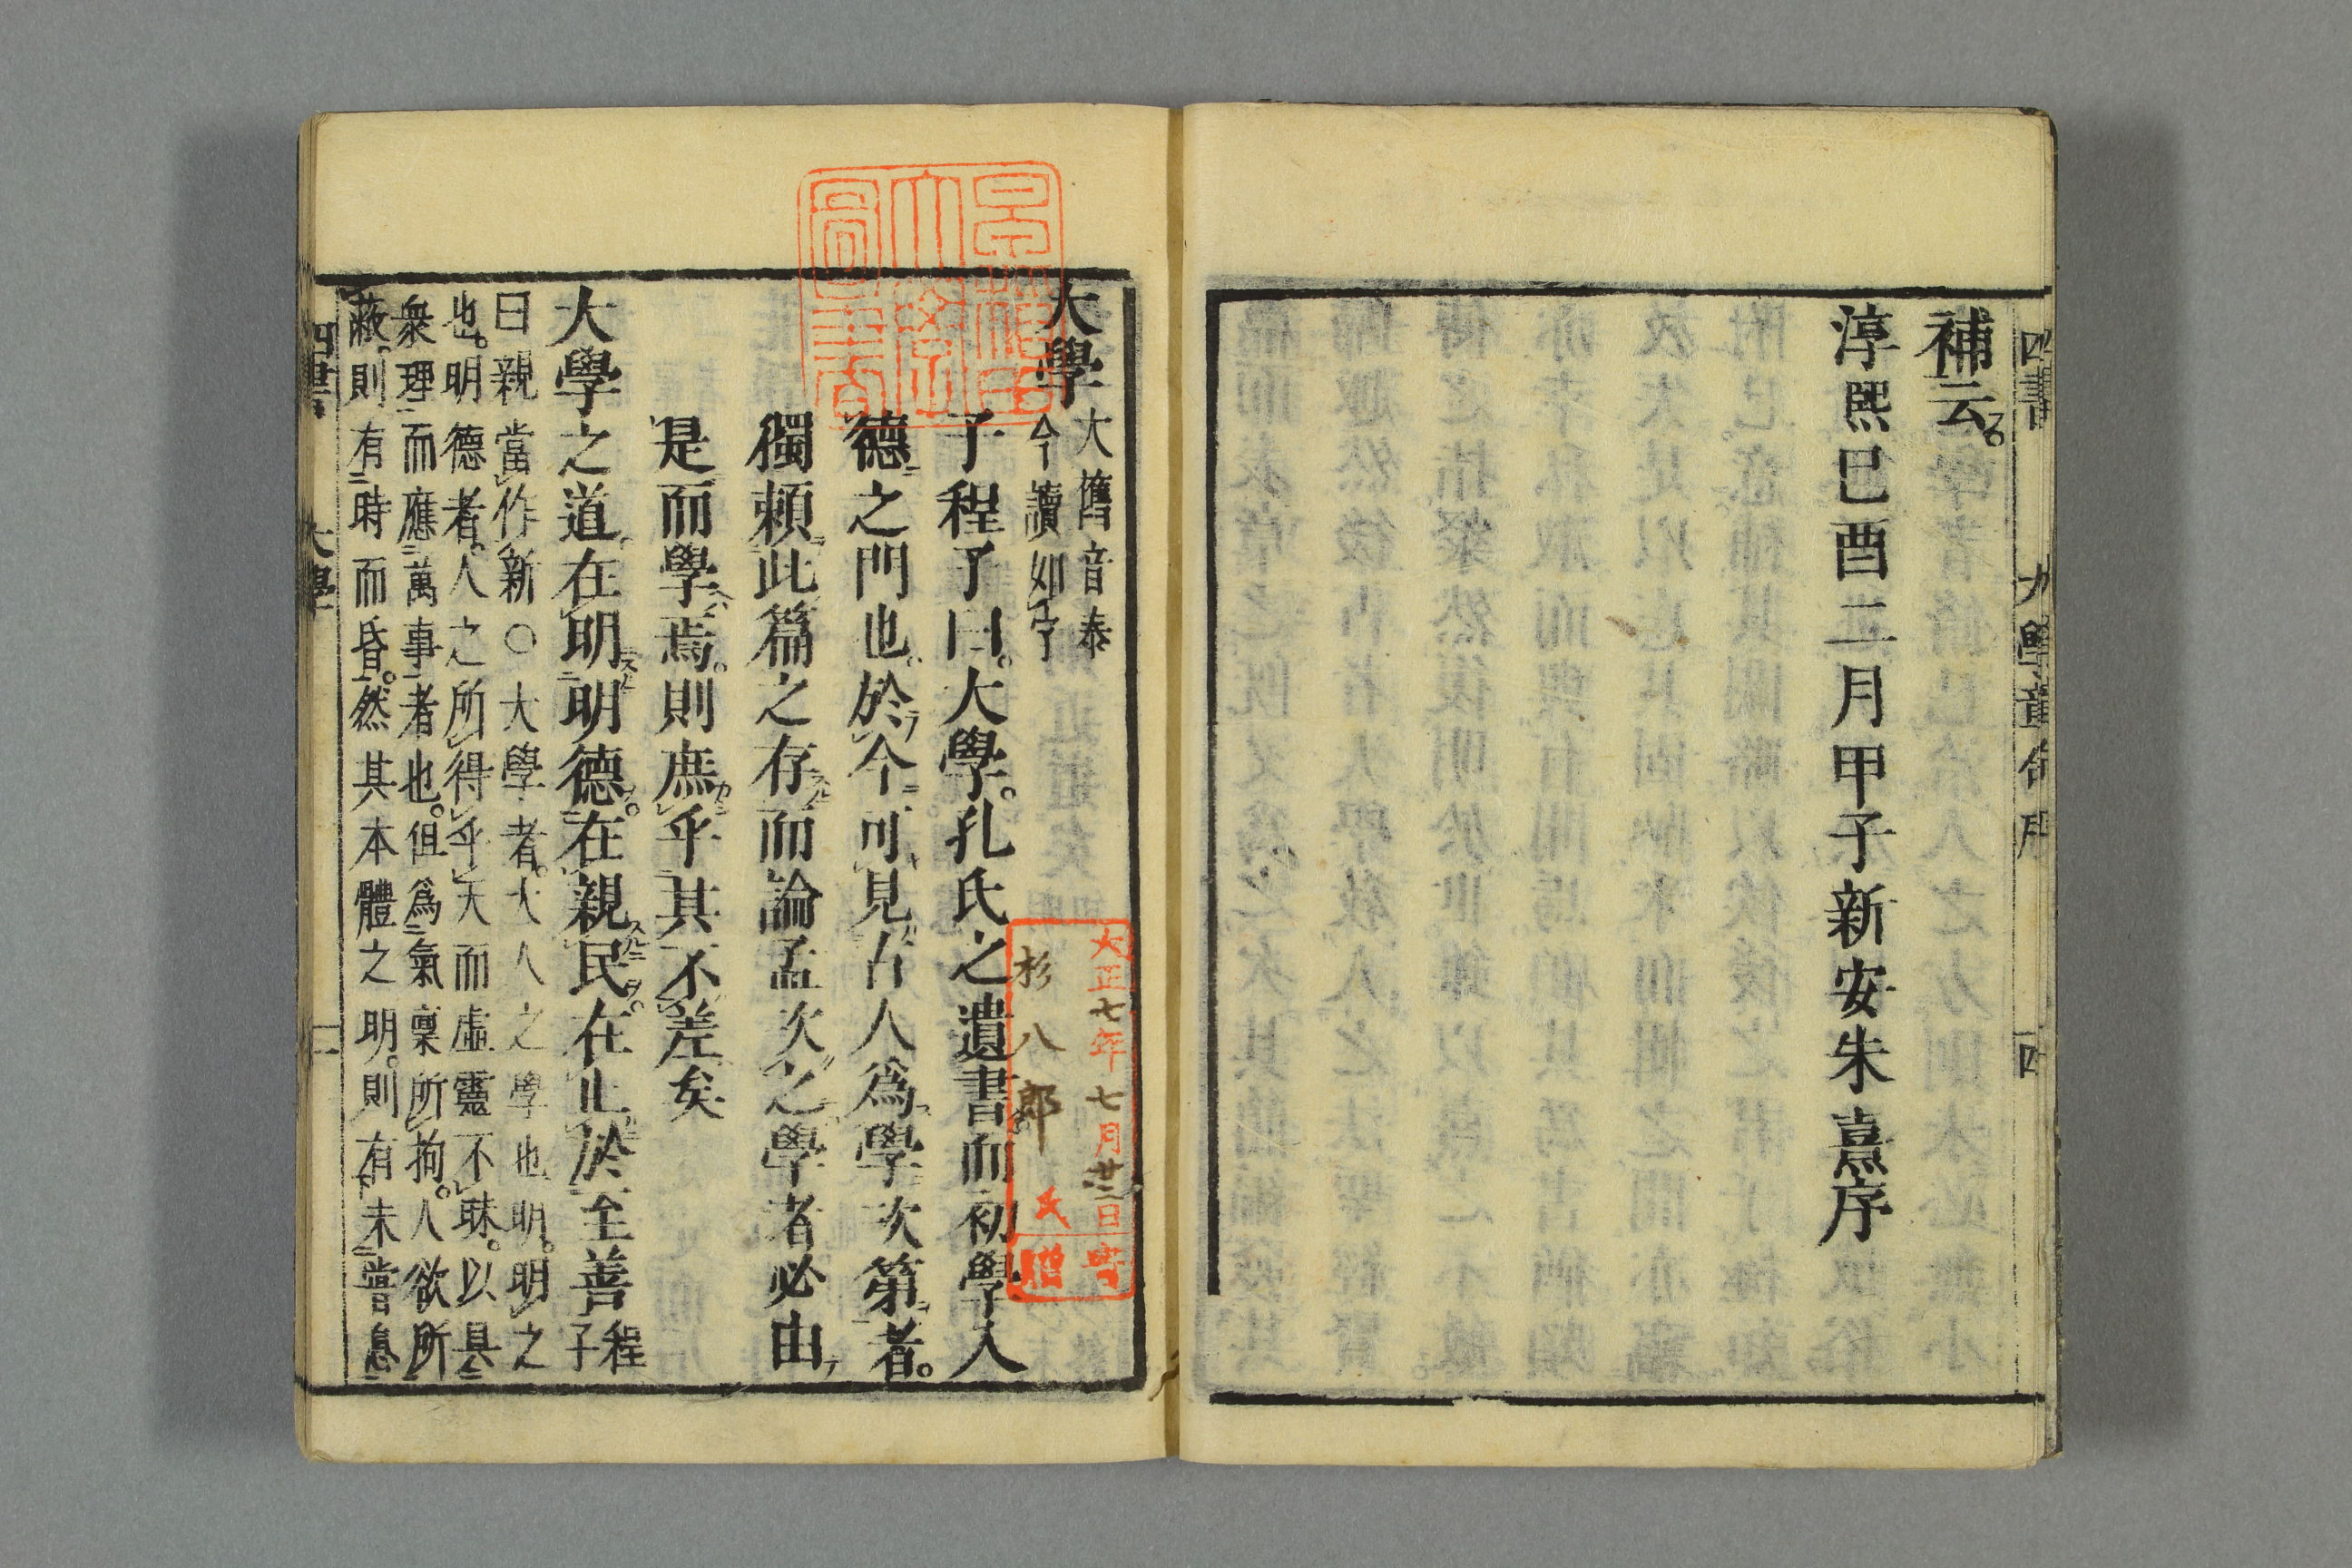 四書 大學章句序 四
補云
淳熙已酉二月甲子新安朱熹序
大學
大舊音泰
今讀如字
子程子曰。大學。孔氏之遺書。而初學入
德之門也。於今可見古人爲學次第者。
獨頼此篇之存而論孟次之學者必由
是而學焉。則庶乎其不差矣
大學之道。在明明德。在親民。在止於至善
程子
曰親當作新○大學者。大人之學也明。明之
也。明德者。人之所得乎天而虛靈不昧。以具
衆理而應萬事者也。但爲氣稟所拘。人欲所
蔽。則有時而昏。然其本體之明。則有未嘗息
四書 大學 一
大正七年七月廿三日寄
杉八郎氏贈